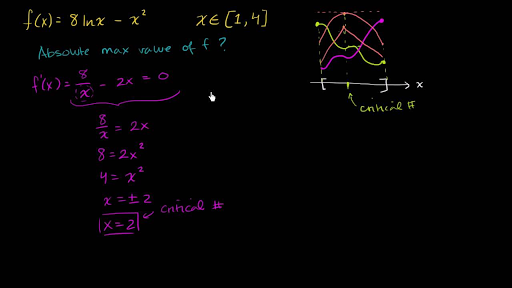 f(x) = 8 ln x − x²   x ∈ [1, 4]
Absolute max value of f ?
f'(x) = 8/x − 2x = 0
8/x = 2x
8 = 2x²
4 = x²
x = ± 2
x = 2 critical #
[ ] x
critical #